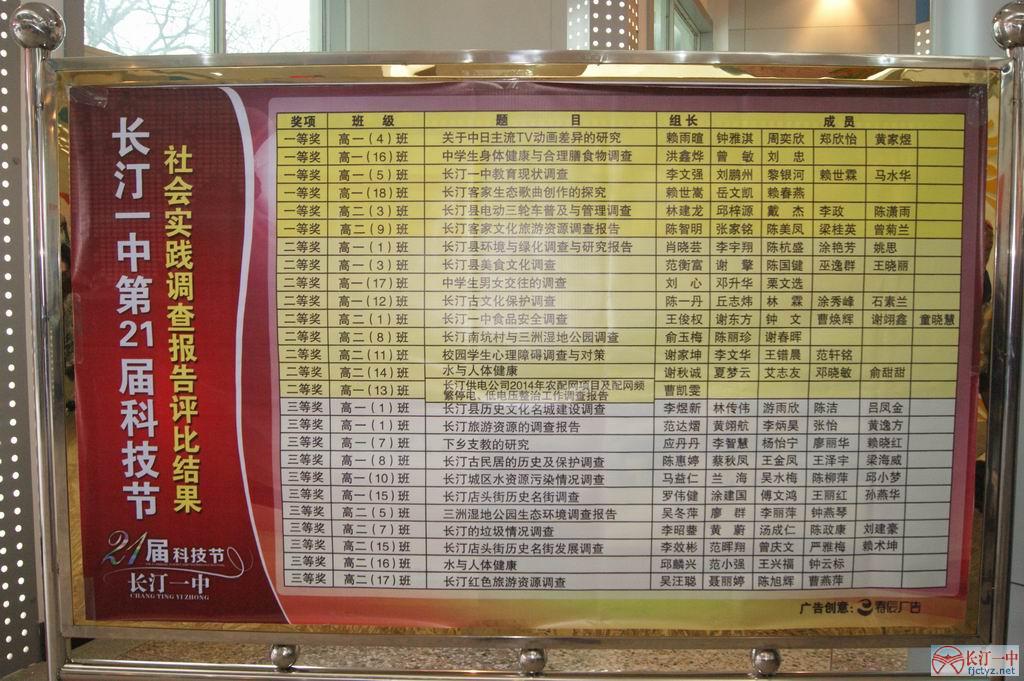 长汀一中第21届科技节
社会实践调查报告评比结果
21届科技节
长汀一中
CHANG TING YI ZHONG
奖项 班 级 题 目 组长 成 员
一等奖 高一(4)班 关于中日主流TV动画差异的研究 赖雨暄 钟雅淇 周奕欣 郑欣怡 黄家煜
一等奖 高一(16)班 中学生身体健康与合理膳食物调查 洪鑫烨 曾 敏 刘 忠
一等奖 高一(5)班 长汀一中教育现状调查 李文强 刘鹏州 黎银河 赖世霖 马水华
一等奖 高一(18)班 长汀客家生态歌曲创作的探究 赖世嵩 岳文凯 赖春燕
一等奖 高二(3)班 长汀县电动三轮车普及与管理调查 林建龙 邱梓源 戴 杰 李政 陈潇雨
一等奖 高二(9)班 长汀客家文化旅游资源调查报告 陈智明 张家铭 陈美凤 梁桂英 曾菊兰
二等奖 高一(1)班 长汀县环境与绿化调查与研究报告 肖晓芸 李宇翔 陈杭盛 涂艳芳 姚思
二等奖 高一(3)班 长汀县美食文化调查 范衡富 谢 擎 陈国健 巫逸群 王晓丽
二等奖 高一(17)班 中学生男女交往的调查 刘 心 邓升华 栗文选
二等奖 高一(12)班 长汀古文化保护调查 陈一丹 丘志炜 林 霖 涂秀峰 石素兰
二等奖 高二(1)班 长汀一中食品安全调查 王俊权 谢东方 钟 文 曹焕辉 谢翊鑫 童晓慧
二等奖 高二(8)班 长汀南坑村与三洲湿地公园调查 俞玉梅 陈丽珍 谢春晖
二等奖 高二(11)班 校园学生心理障碍调查与对策 谢家坤 李文华 王错晨 范轩铭
二等奖 高二(14)班 水与人体健康 谢秋诚 夏梦云 艾志友 邓晓敏 俞甜甜
二等奖 高一(13)班 长汀供电公司2014年农配网项目及配网频繁停电、低电压整治工作调查报告 曹凯雯
三等奖 高一(1)班 长汀县历史文化名城建设调查 李煜新 林传伟 游雨欣 陈洁 吕凤金
三等奖 高一(1)班 长汀旅游资源的调查报告 范达熠 黄翊航 李炳昊 张怡 黄逸方
三等奖 高一(7)班 下乡支教的研究 应丹丹 李智慧 杨怡宁 廖丽华 赖晓红
三等奖 高一(8)班 长汀古民居的历史及保护调查 陈惠婷 蔡秋凤 王金凤 王泽宇 梁海威
三等奖 高一(10)班 长汀城区水资源污染情况调查 马益仁 兰 海 吴水梅 陈柳萍 邱小梦
三等奖 高一(15)班 长汀店头街历史名街调查 罗伟健 涂建国 傅文鸿 王丽红 孙燕华
三等奖 高二(5)班 三洲湿地公园生态环境调查报告 吴冬萍 廖 群 李丽萍 钟燕琴
三等奖 高二(7)班 长汀的垃圾情况调查 李昭蓥 黄 蔚 汤成仁 陈政康 刘建豪
三等奖 高二(15)班 长汀店头街历史名街发展调查 李效彬 范晖翔 曾庆文 严雅梅 赖术坤
三等奖 高二(16)班 水与人体健康 邱麟兴 范小强 王兴福 钟云标
三等奖 高二(17)班 长汀红色旅游资源调查 吴汪聪 聂丽婷 陈旭辉 曹燕萍
广告创意:春辰广告
长汀一中
fjctyz.net